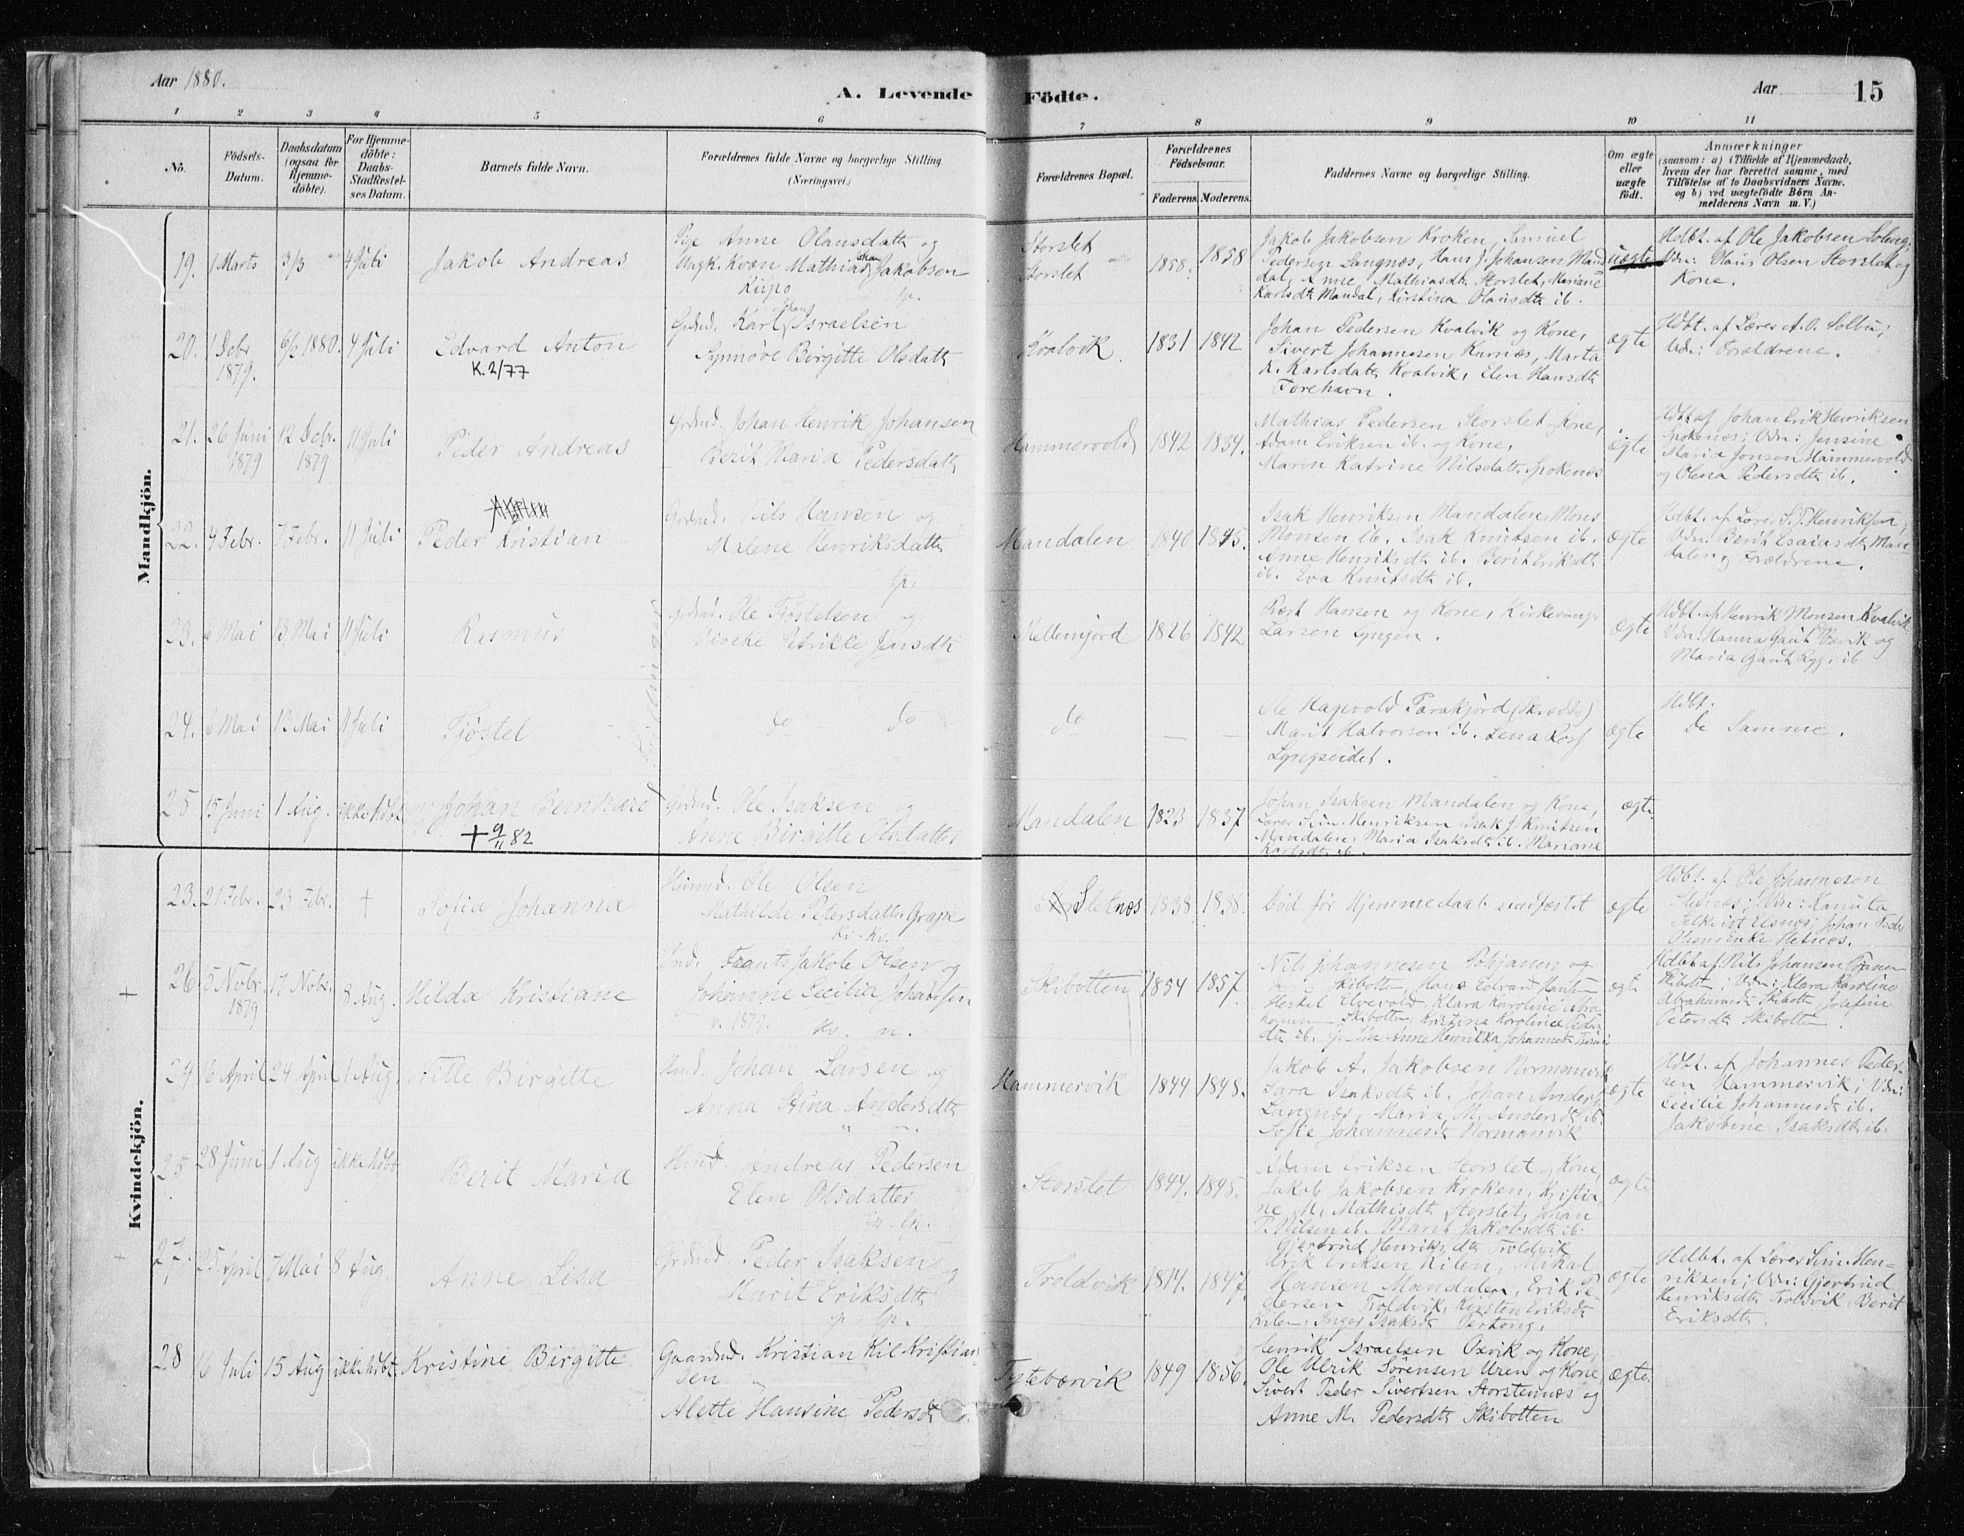 Aar 1880.
A. Levende Födte.
Aar
15
1 2 3 4 5 6 7 8 9 10 11
No.
Födsels-
Datum.
Daabsdatum
(ogsaa for
Hjemme-
döbte).
For Hjemme-
döbte:
Daabs-
Stadfæstel-
ses Datum.
Barnets fulde Navn.
Forældrenes fulde Navne og borgerlige Stilling
(Næringsvei.)
Forældrenes Bopæl.
Forældrenes
Födselsaar.
Faderens Moderens
Faddernes Navne og borgerlige Stilling.
Om ægte
eller
uægte
födt.
Anmærkninger
(saasom: a) i Tilfælde af Hjemmedaab,
hvem der har forrettet samme, med
Tilföielse af to Daabsvidners Navne.
og b) ved uægtefödte Börn An-
melderens Navn m. V.)
Mandkjön.
19. 1 Marts 3/3 4 Juli
Jakob Andreas
Pige Anne Olausdattr og
Ungk. Kvæn Mathias Johan Jakobsen
Kuipo
Storslet
Storslet
1858. 1858
Jakob Jakobsen Kroken, Samuel
Pedersen Langnæs, Hans J. Johansen Man
dal, Anne Mathiasdtr Storslet, Mariane
Karlsdtr Mandal, Kirstina Olausdtr ib.
uægte
Hdbt. af Ole Jakobsen Soleng;
Vdn: Olaus Olsen Storslet og
Kone.
20. 1 Decbr 1879. 6/2 1880. 4 Juli
Edvard Anton
K. 2/77
Grdmd. Karl Johans Israelsen
Synnøve Birgitte Olsdattr
Kvalvik 1831 1842
Johan Pedersen Kvalvik og Kone,
Sivert Johannesen Kurnæs, Marta
K. Karlsdattr Kvalvik, Elen Hansdtr
Forehavn.
ægte
Hdbt. af Lærer A. O. Solbu;
Vdn: Forældrene.
21. 26 Juni 1879 12 Decbr. 1879 11 Juli
Peder Andreas
Grdmd. Johan Henrik Johansen
Berit Maria Pedersdattr
Hammervold 1842 1834.
Mathias Pedersen Storslet og Kone,
Adam Eriksen ib. og Kone,
Maren Katrine Nilsdattr Spokenæs
ægte
Hdbt. af Johan Erik Henriksen
Spokenæs; Vdn: Jensine
Maria Jonsen Hammervold
og Olena Pedersdtr ib.
22. 4 Febr. 7 Febr. 11 Juli
Peder Kristian
Grdmd. Nils Hansen og
Malene Henriksdattr
Lp.
Mandalen 1840 1845.
Isak Henriksen Mandalen, Mons
Monsen ib. Isak Knutsen ib.
Anne Henriksdtr ib. Berit Eriksdtr
ib. Eva Knutsdtr ib.
ægte
Hdbt. af Lærer S. J. Henriksen,
Vdn: Berit Esaiasdtr Man
dalen og Forældrene.
23. 6 Mai 13 Mai 11 Juli
Rasmus
Tvillinger
Grdmd. Ole Fjøstelsen og
Viveke Petrikke Jensdtr
Mellemjord 1826 1842
Præst Hansen og Kone, Kirkesang.
Larsen Lyngen.
ægte
Hdbt. af Henrik Monsen Kvalvik
Vdn: Hanna Gaut Oxvik og
Maria Gaut Ryg. ib
24. 6 Mai 13 Mai 11 Juli
Fjøstel
do do do
— —
Ole Hagevold Parakjord (Skrædder)
Marit Halvorsen ib. Lena Korf
Lyngseidet.
ægte
Hdbt.
de Samme.
25 15 Juni 1 Aug. ikke hdbt
Johan Bernhard
+ 9/11 82
Grdmd. Ole Isaksen og
Anne Birgitte Olsdatter
Mandalen 1823 1837
Johan Isaksen Mandalen og Kone,
Lærer Sim. Henriksen Isak J. Knutsen
Mandalen, Maria Isaksdtr ib. Mariane
Karlsdtr ib.
ægte
Kvindekjön.
23. 21 Febr. 23 Febr. +
Sofia Johanna
Husmd. Ole Olsen
Mathilde Petersdatter Grape
Kv. Kv.
Sletnæs 1838 1838.
Død før Hjemmedaab stadfæstet
ægte
Hdbt. af Ole Johannesen
Sletnæs; Vdn: Kanuta
26. 5 Novbr. 1879 17 Novbr. 8 Aug.
Hilda Kristiane
Frants Jakob Olsen og
Johanne Cecilia Johansen
Skibotten 1854 1857.
Nils Johannesen Pohjanen og
Skibotten, Hans Edvard
Elvevold, Klara Karoline Abra
Skibotten, Kristina Karolina Peder
dtr ib. Anne Henrikka Johannesdtr
ægte
Hdbt. af Nils Johansen
Skibotten; Vdn: Klara Karoline
Abrahamsdtr Skibotten, Josefine
Petersdtr Skibotten.
24 16 April 24 April 1 Aug.
Nette Birgitte
Johan Larsen og
Anna Stina Andersdtr
Hammervik 1844 1848.
Jakob A. Jakobsen Normanvik
Sara Isaksdtr ib. Johan Anders
Langnæs, Maria M. Andersdtr ib.
Sofie Johannesdtr Normanvik
ægte
Hdbt. af Johannes Peder
sen Hammervik; Vdn:
Cecilie Johannesdtr ib.
Jakobine Isaksdtr ib.
25 28 Juni 1 Aug ikke hdbt
Berit Maria
Husmd. Andreas Pedersen
Elen Olsdatter
Lp.
Storslet 1844. 1845.
Adam Eriksen Storslet og Kone,
Jakob Jakobsen Kroken, Kristia-
ne M. Mathisdtr Storslet, Johan
P. Nilsen ib. Marit Jakobsdtr ib.
ægte
27. 25 April 7 Mai 8 Aug.
Anne Lisa
Grdmd. Peder Isaksen
Marit Eriksdtr
Lp.
Troldvik 1814. 1847.
Gjertrud Henriksdtr Troldvik
Erik Eriksen Kilen, Mikal
Hansen Mandalen, Erik Pe-
dersen Troldvik, Kirsten Eriksdtr
Kilen, Inger Isaksdtr
ægte
Hdbt. af Lærer Sim. Hen-
riksen; Vdn: Gjertrud
Henriksdtr Troldvik, Berit
Eriksdtr
28 6 Juli 15 Aug ikke hdbt
Kristine Birgitte
Gaardmd. Kristian Kil Kristian
sen
Alette Hansine Pedersdtr
Tytebærvik 1849 1856.
Henrik Israelsen Oxvik og Kone,
Ole Ulrik Sørensen Uren og Kone,
Sivert Peder Sivertsen Storstennæs og
Anne M. Pedersdtr Skibotten
ægte.